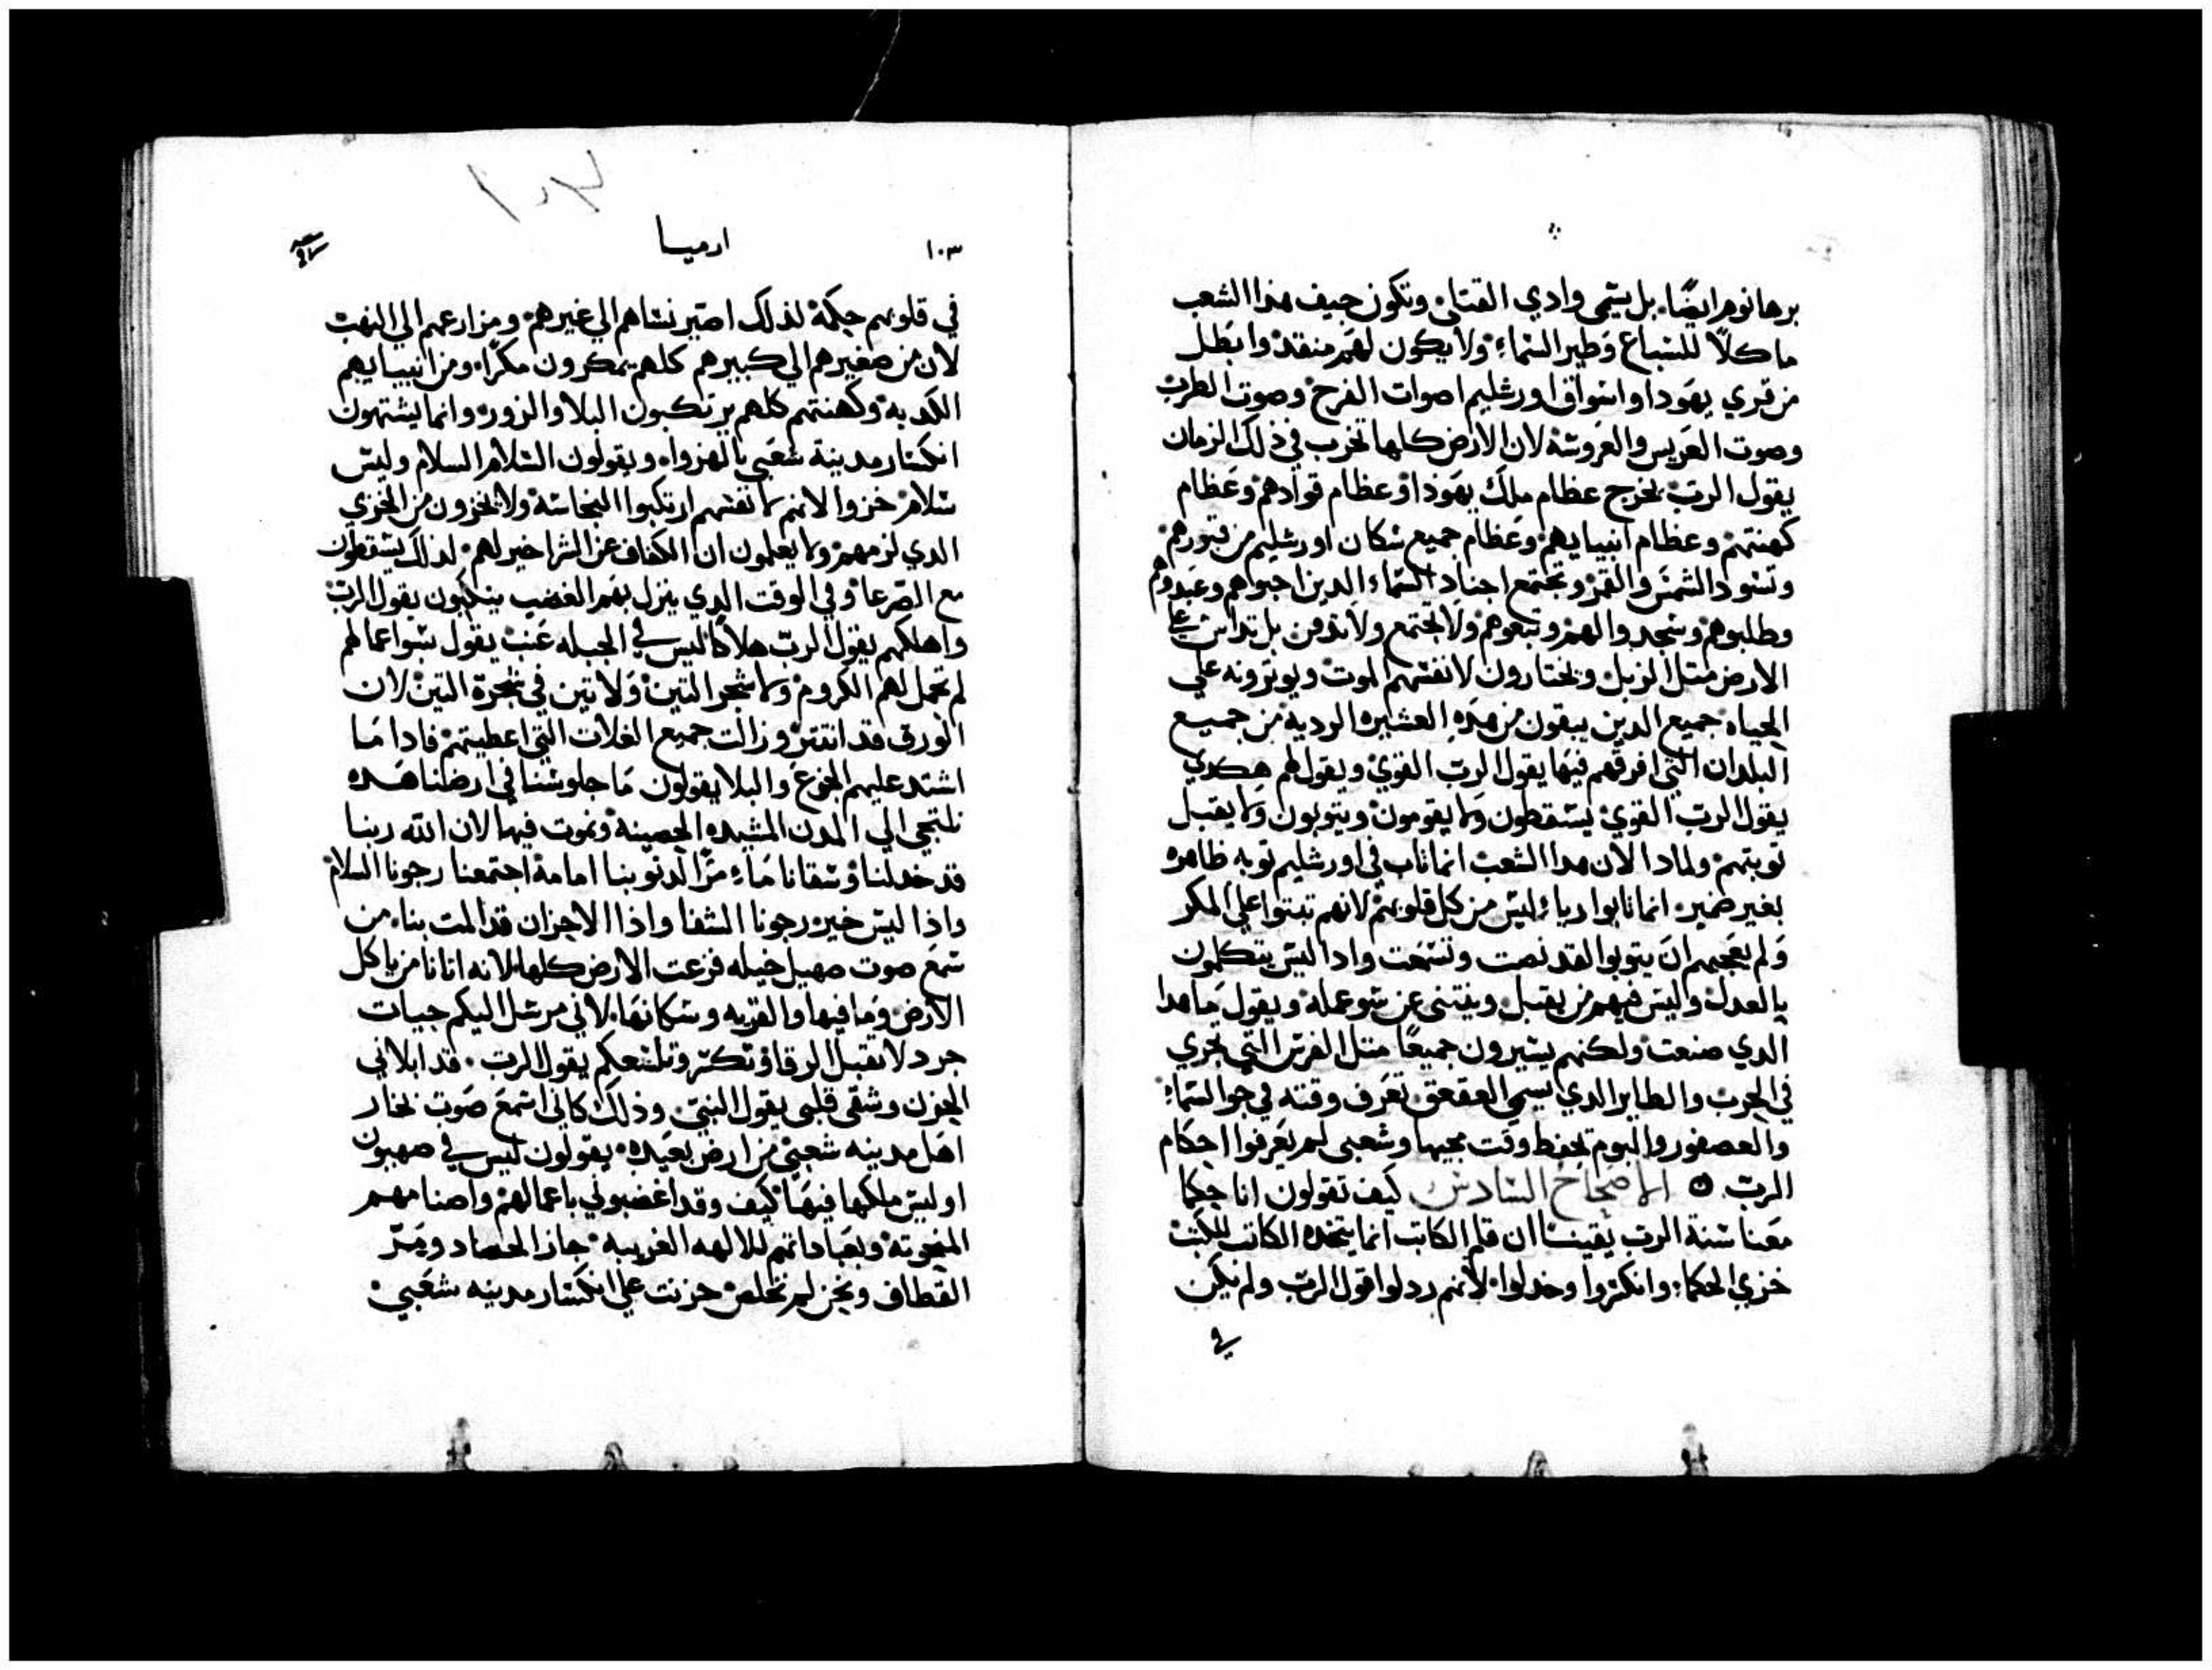 برهانوم ايضًا. بل يسمى وادي القتلى وتكون جيف هذا الشعب
ماكلاً للسباع وطير السماء ولا يكون لهم منقذ وابطل
من قري يهودا واسواق اورشليم اصوات الفرح وصوت الطرب
وصوت العريس والعروسة لان الارض كلها تخرب في ذلك الزمان
يقول الرب يخرج عظام ملك يهودا وعظام قوادهم وعظام
كهنتهم وعظام انبيايهم وعظام جميع سكان اورشليم من قبورهم
وتسود الشمس والقمر وتجتمع اجناد السماء الدين احبوهم وعبدوهم
وطلبوهم وسجدوا لهم وتبعوهم ولا تجتمع ولا تدفن بل تداس علي
الارض متل الزبل ويختارون لانفسهم الموت ويوترونه علي
الحياه جميع الدين يبقون من هده العشيره الرديه من جميع
البلدان التي افرقهم فيها يقول الرب القوي ويقول لهم هكدي
يقول الرب القوي يسقطون ولا يقومون ويتوبون ولا يقبل
توبتهم ولمادا لان هدا الشعب انما تاب في اورشليم توبه ظاهره
بغير ضمير انما تابوا رياء ليس من كل قلوبهم لانهم تبتوا علي المكر
ولم يعجبهم ان يتوبوا لقد نصت وتسمعت وادا ليس يتكلمون
بالعدل وليس فيهم من يقبل وينتنى عن سو عمله ويقول ما هدا
الدي صنعت ولكنهم يسيرون جميعًا متل الفرس التي تجري
في الحرب والطاير الدي يسمي العقعق تعرف وقته في جو السماء
والعصفور والبوم تحفط وقت مجيها وشعبى لم يعرفوا احكام
الرب ۞ الاصحاح السادس كيف تقولون انا حكما
معنا سنة الرب يقينًا ان قلم الكاتب انما يتخده الكاتب للكتب
خزي الحكما وانكسروا وخدلوا لانهم ردلوا قول الرب ولم يكن
في
١٠٣
ارميا
في قلوبهم حكمة لذلك اصير نساهم الي غيرهم ومزارعهم الي النهب
لان من صغيرهم الي كبيرهم كلهم يمكرون مكرًا ومن انبيايهم
الكدبه وكهنتهم كلهم يرتكبون البلا والزور وانما يشتهون
انكسار مدينة شعبي بالهزواه ويقولون السلام السلام وليس
سلام خزوا لانهم لانفسهم ارتكبوا النجاسة ولا يخزون من الخزي
الدي لزمهم ولا يعلمون ان الكفاف عن الشر اخير لهم لذلك يسقطون
مع الصرعا وفي الوقت الدي ينزل بهم الغضب ينكبون يقول الرب
واهلكهم يقول الرب هلاكا ليس في الحبله عنب يقول سو اعمالهم
لم تحمل لهم الكروم ولا شجر التين ولا تين في شجرة التين لان
الورق قد انتتر وزالت جميع الغلات التي اعطيتهم فادا ما
اشتد عليهم الجزع والبلا يقولون ما جلوسنا في ارضنا هده
نلتجى الي المدن المشيده الحصينة ونموت فيها لان الله ربنا
قد خدلنا وسقانا ماء مرًا لدنوبنا امامه اجتمعنا رجونا السلام
واذا ليس خير رجونا الشفا واذا الاحزان قد المت بنا من
سمع صوت صهيل خيله فزعت الارض كلها لانه اتانا من ياكل
الارض وما فيها والقريه وسكانها لاني مرسل اليكم حيات
جرد لا تقبل الرقا وتكسر وتلسعكم يقول الرب قد ابلاني
الحزن وشقى قلبى يقول النبي وذلك كاني اسمع صوت نخار
اهل مدينه شعبي من ارض بعيده يقولون ليس في صهيون
او ليس ملكها فيها كيف وقد اغضبوني باعمالهم واصنامهم
المنحوته وبعباداتهم للالهه الغريبه جاز الحصاد ومر
القطاف ونحن لم نخلص حزنت علي انكسار مدينه شعبي